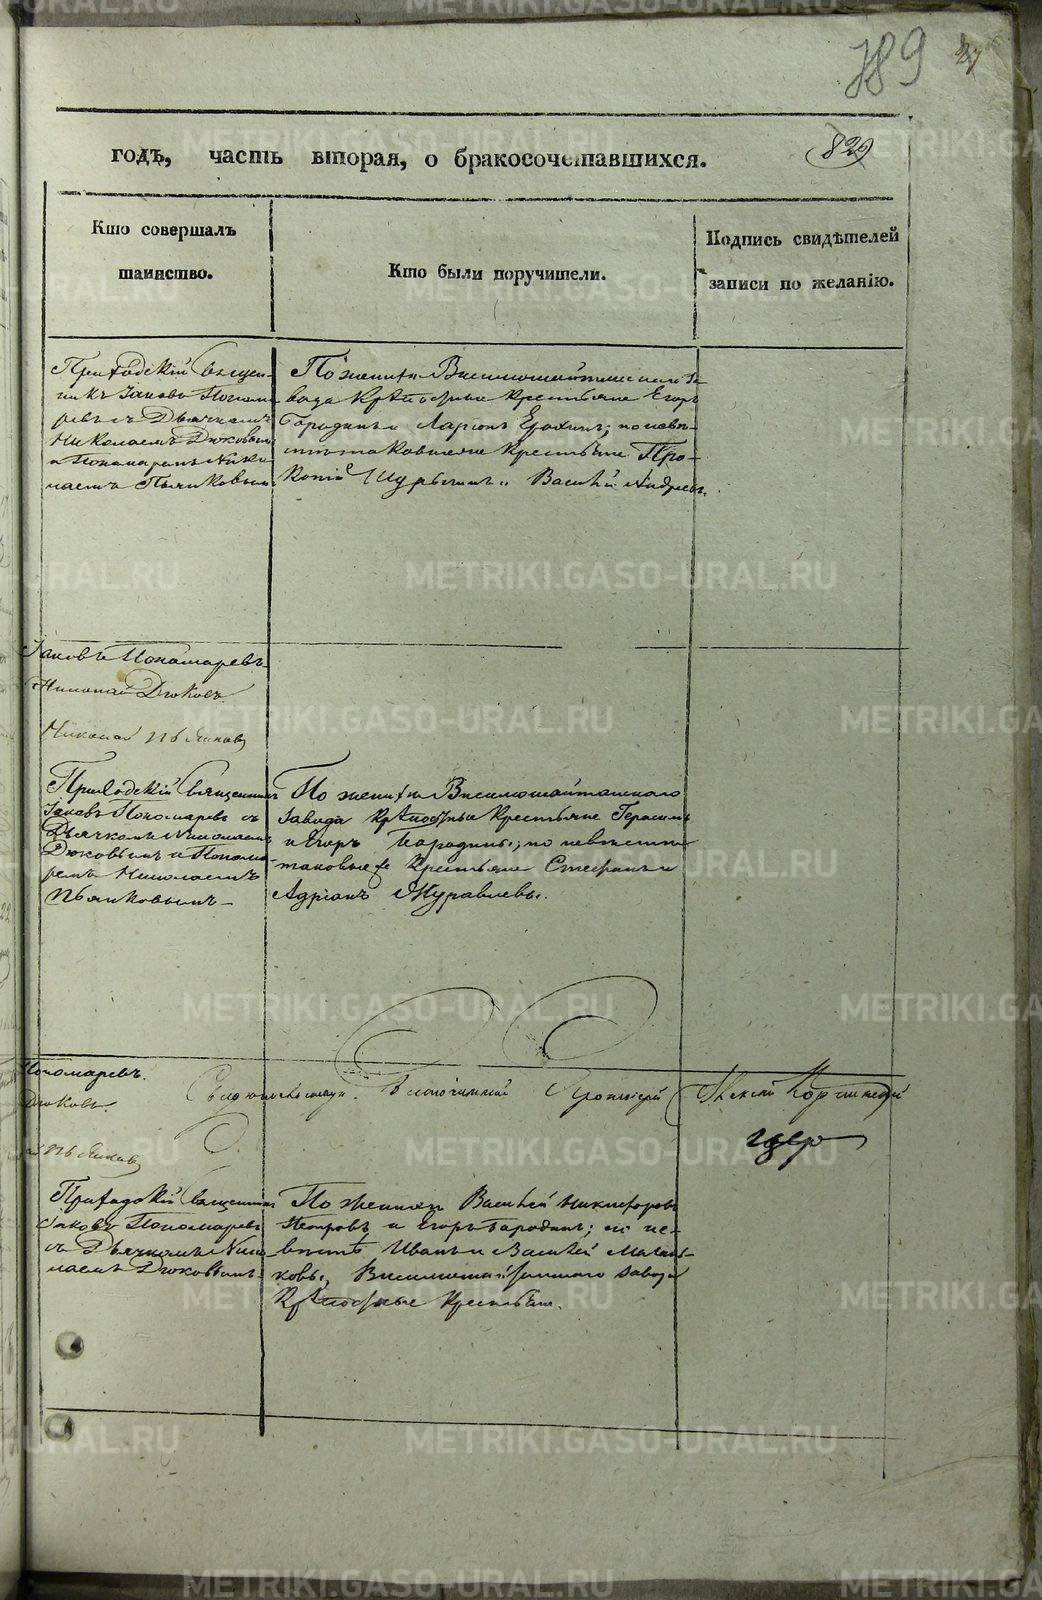 189
27
829
годъ, часть вторая, о бракосочетавшихся.
Кто совершалъ
таинство.
Кто были поручители.
Подпись свидѣтелей
записи по желанію.
Приходскій Священ-
никъ Іаковъ Понома
ревъ съ Дьячкомъ
Николаемъ Дюковымъ
и Пономаремъ Нико
лаемъ Пьянковымъ
По женихѣ Висимошайтанскаго За
вода Крѣпостные Крестьяне Егоръ
Бородинъ и Ларіонъ; по невѣ-
стѣ таковые же Крестьяне Про-
копій и Василій Андреевъ.
Іаковъ Пономаревъ
Николай Дюковъ
Николай Пьянковъ
Приходскій Священникъ
Іаковъ Пономаревъ съ
Дьячкомъ Николаемъ
Дюковымъ и Понома
ремъ Николаемъ
Пьянковымъ
По женихѣ Висимошайтанскаго
завода крѣпостные Крестьяне Герасимъ
и Егоръ Бородины; по невѣстѣ
таковые же Крестьяне Стефанъ и
Адріанъ Журавлевы.
Пономаревъ.
Дюковъ.
Пьянковъ
Свидѣтельствовалъ Благочинный Протоіерей
Приходскій Священникъ
Іаковъ Пономаревъ
съ Дьячкомъ Нико
лаемъ Дюковымъ
По женихѣ Василій Никифоровъ
Петровъ и Егоръ Бородинъ; по не-
вѣстѣ Иванъ и Василій
Висимошайтанскаго завода
Крѣпостные Крестьяне.
METRIKI.GASO-URAL.RU